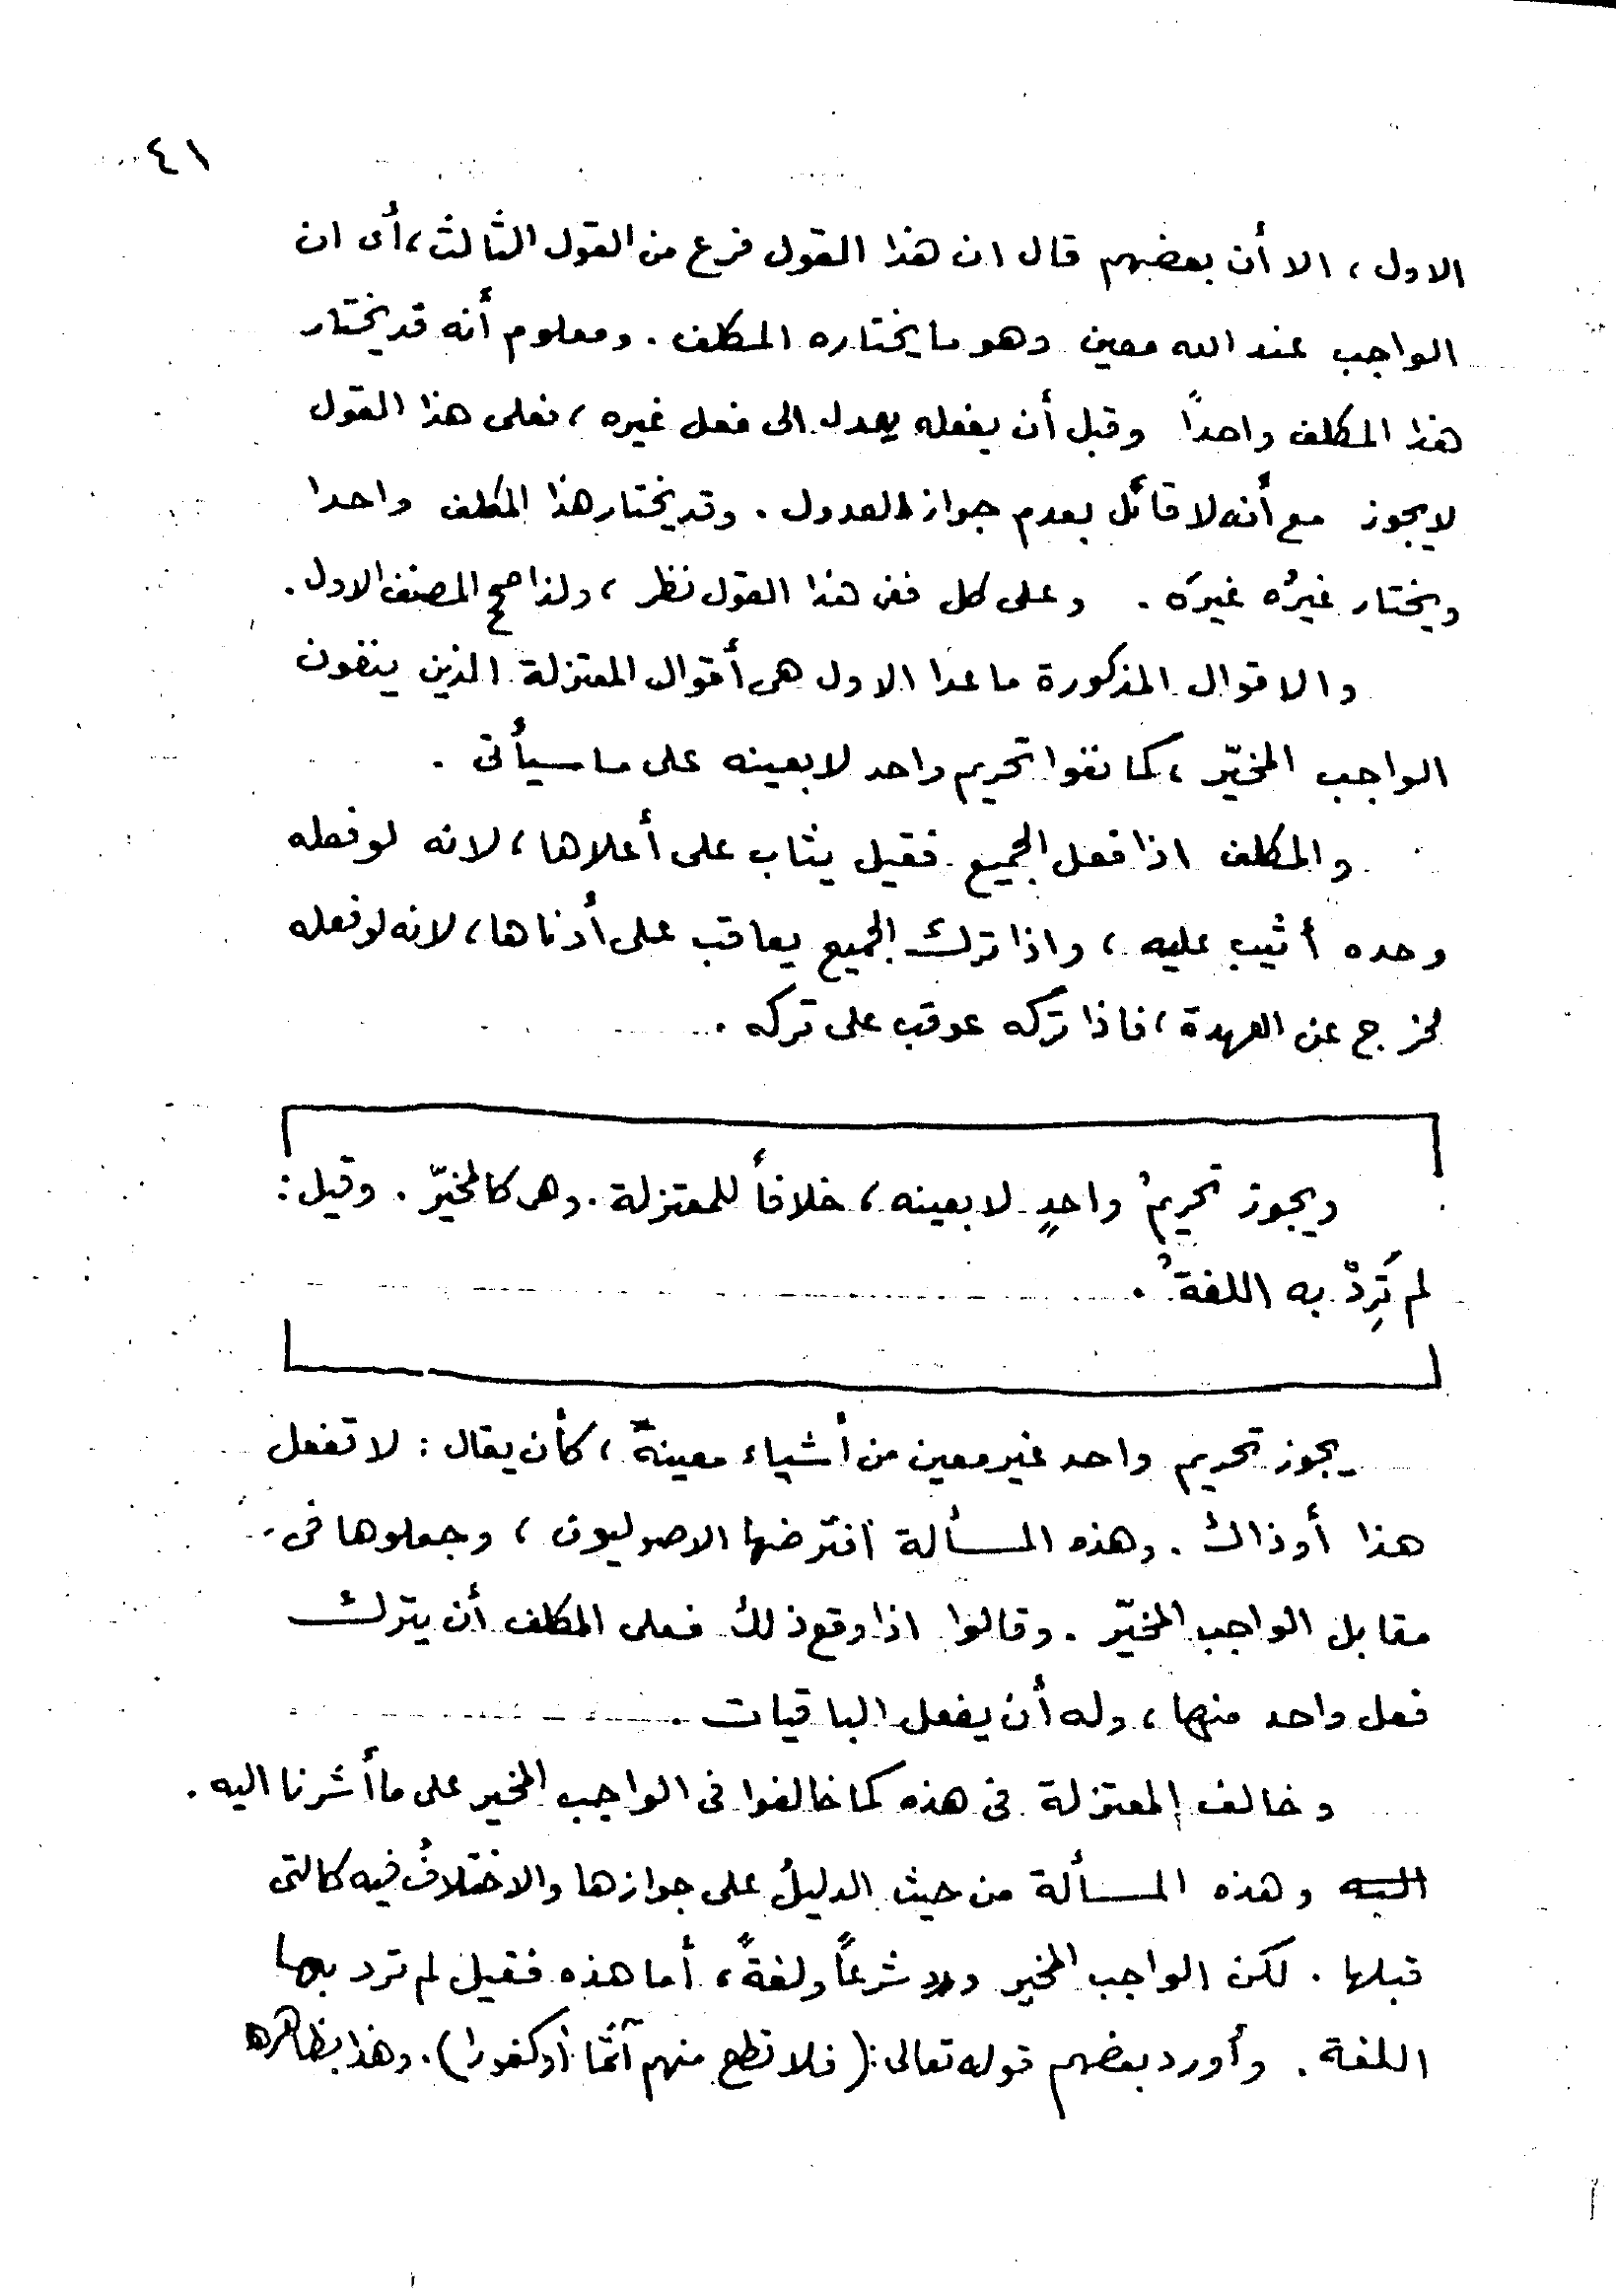 ٤١
الاول ، الا أن بعضهم قال ان هذا القول فرع من القول الثالث ، أى ان
الواجب عند الله معين وهو ما يختاره المكلف . ومعلوم أنه قد يختار
هذا المكلف واحداً وقبل أن يفعله يعدل الى فعل غيره ، فعلى هذا القول
لا يجوز مع أنه لا قائل بعدم جواز العدول . وقد يختار هذا المكلف واحدا
ويختار غيرُه غيرَه . وعلى كل ففى هذا القول نظر ، ولذا صحح المصنف الاول .
والاقوال المذكورة ما عدا الاول هى أقوال المعتزلة الذين ينفون
الواجب المخيّر ، كما نفوا تحريم واحد لا بعينه على ما سيأتى .
والمكلف اذا فعل الجميع فقيل يثاب على أعلاها ، لانه لو فعله
وحده أثيب عليه ، واذا ترك الجميع يعاقب على أدناها ، لانه لو فعله
لخرج عن العهدة ، فاذا تركه عوقب على تركه .
ويجوز تحريمُ واحدٍ لا بعينه ، خلافاً للمعتزلة . وهى كالمخيّر . وقيل :
لم تَرِدْ به اللغةُ .
يجوز تحريم واحد غير معين من أشياء معينة ، كأن يقال : لا تفعل
هذا أو ذاك . وهذه المسألة افترضها الاصوليون ، وجعلوها فى
مقابل الواجب المخيّر . وقالوا اذا وقع ذلك فعلى المكلف أن يترك
فعل واحد منها ، وله أن يفعل الباقيات .
وخالف المعتزلة فى هذه كما خالفوا فى الواجب المخير على ما أشرنا اليه .
اليه وهذه المسألة من حيث الدليلُ على جوازها والاختلافُ فيه كالتى
قبلها . لكن الواجب المخير ورد شرعاً ولغةً ، أما هذه فقيل لم ترد بها
اللغة . وأورد بعضهم قوله تعالى : ( فلا تطع منهم آثما أو كفورا ) . وهذا بظاهره